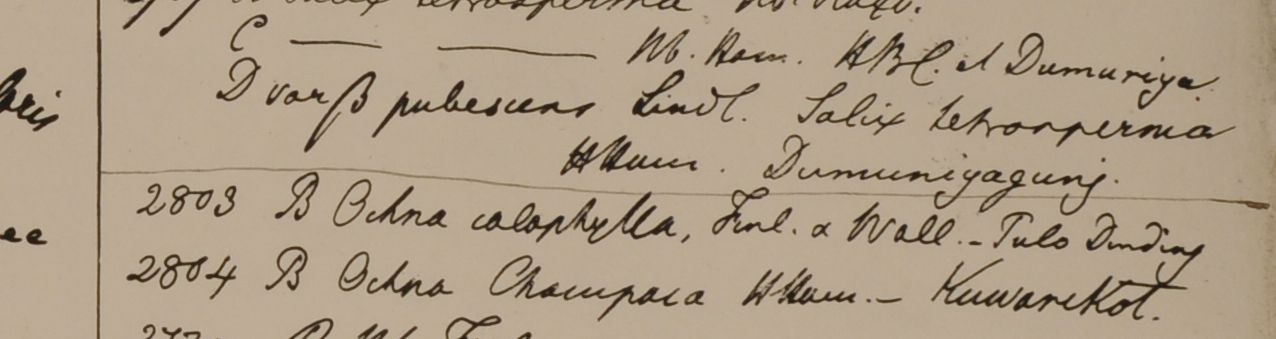 Salix tetrasperma
C — — Hb. Ham. HBC. et Dumuriya
oris
D var β pubescens Lindl. Salix tetrasperma
HHam. Dumuriyagunj.
2803 B Ochna calophylla, Finl. & Wall. - Pulo Dinding
ee
2804 B Ochna Champaca HHam. - Kuwarekot.